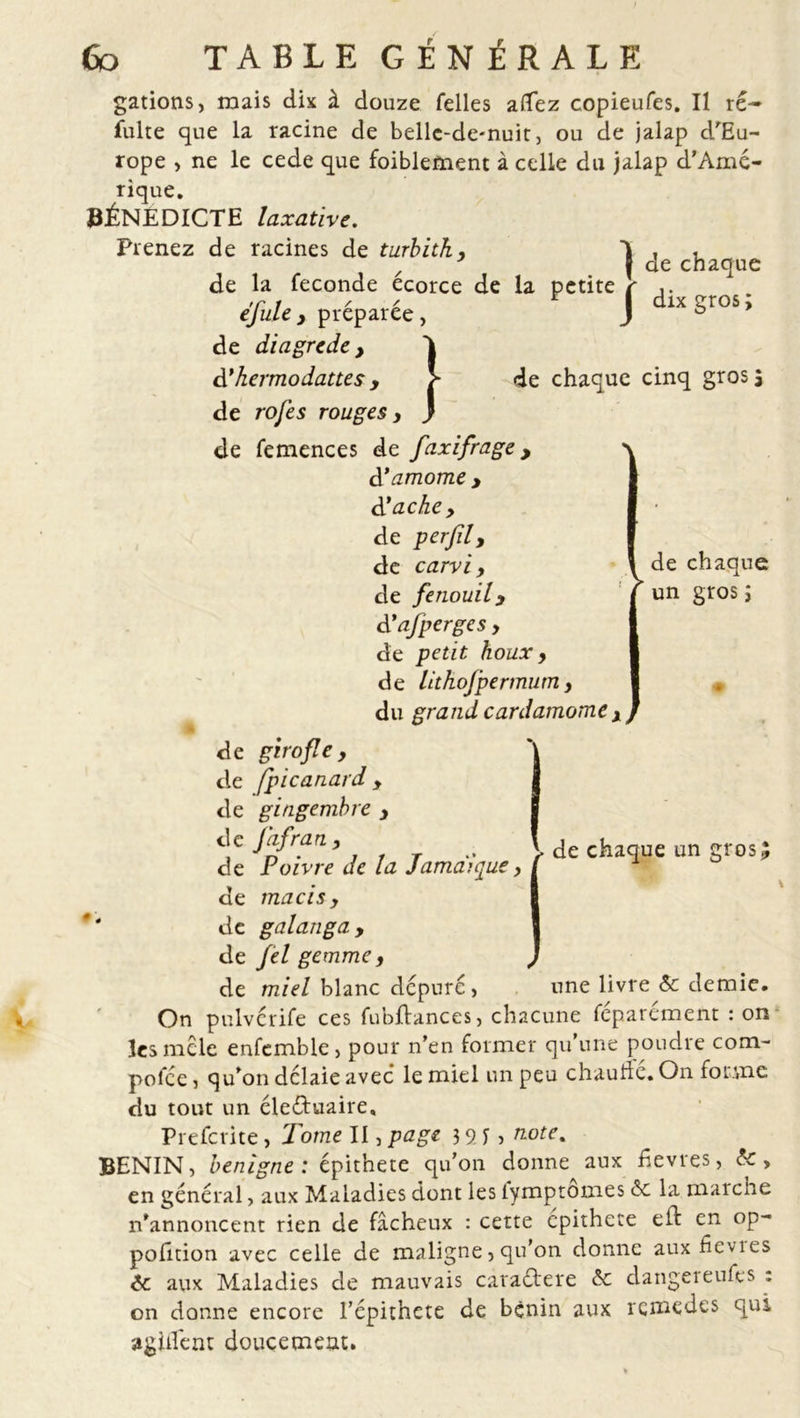 60 TABLE GÉNÉRALE
gations, mais dix à douze ſelles aſſez copieuſes. Il ré-
ſulte que la racine de belle-de-nuit, ou de jalap d'Eu-
rope, ne le cede que foiblement à celle du jalap d'Amé-
rique.
BÉNÉDICTE laxative.
Prenez de racines de turbith, } de chaque
de la ſeconde écorce de la petite } dix gros;
éſule, préparée,
de diagrede,
d'hermodattes, } de chaque cinq gros;
de roſes rouges,
de ſemences de ſaxifrage,
d'amome,
d'ache,
de perſil,
de carvi, } de chaque
de fenouil, } un gros;
d'aſperges,
de petit houx,
de lithoſpermum,
du grand cardamome,
de girofle,
de ſpicanard,
de gingembre,
de ſafran,
de Poivre de la Jamaïque, } de chaque un gros;
de macis,
de galanga,
de ſel gemme,
de miel blanc dépuré, une livre & demie.
On pulvériſe ces ſubſtances, chacune ſéparément : on
les mêle enſemble, pour n'en former qu'une poudre com-
poſée, qu'on délaie avec le miel un peu chauffé. On forme
du tout un électuaire.
Preſcrite, Tome II, page 395, note.
BENIN, benigne : épithete qu'on donne aux fievres, &,
en général, aux Maladies dont les ſymptômes & la marche
n'annoncent rien de fâcheux : cette épithete eſt en op-
poſition avec celle de maligne, qu'on donne aux fievres
& aux Maladies de mauvais caractere & dangereuſes :
on donne encore l'épithete de bénin aux remedes qui
agiſſent doucement.